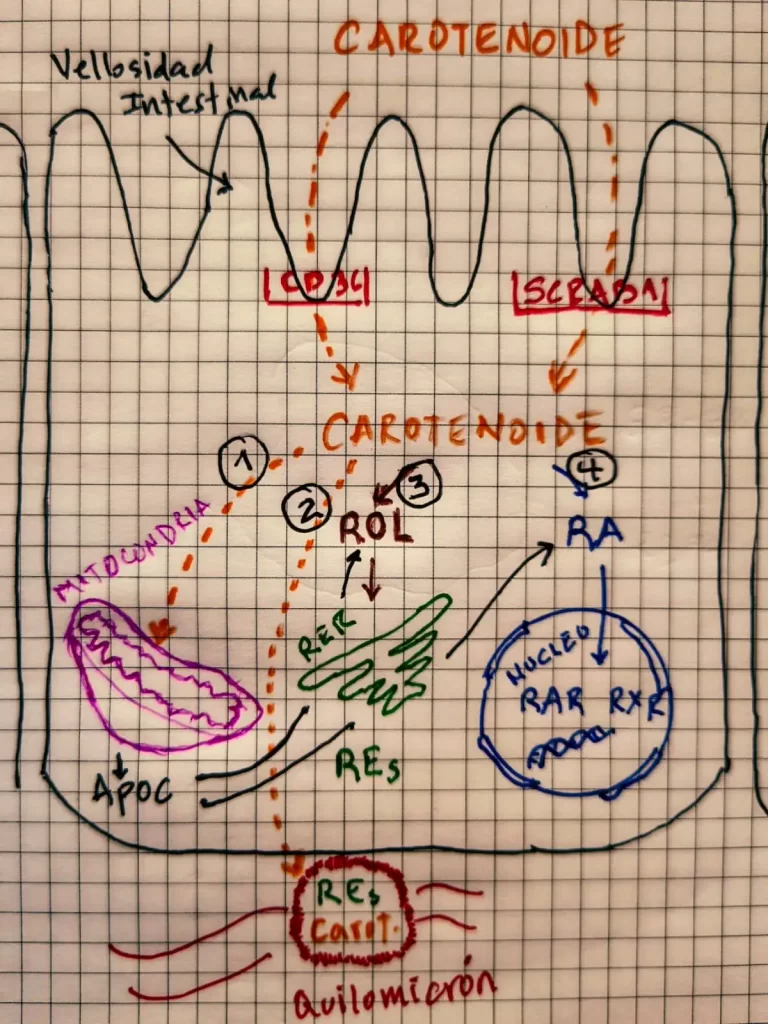 CAROTENOIDE
Vellosidad
Intestinal
CD36
SCRABA1
CAROTENOIDE
1
2
3
4
ROL
RA
MITOCONDRIA
RER
NUCLEO
RAR RXR
REs
APOC
REs
Carot.
Quilomicrón